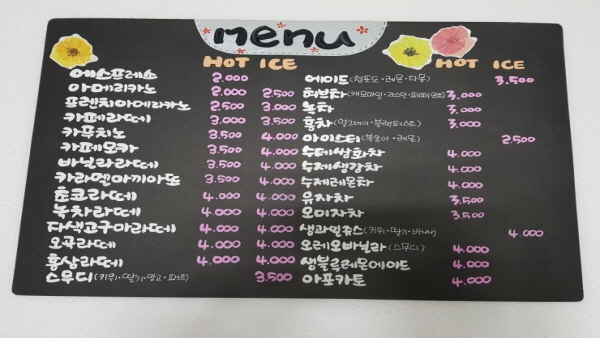 menu
HOT ICE
에스프레소 2.000
아메리카노 2.000 2.500
프렌치아메리카노 2.500 3.000
카페라떼 3.000 3.500
카푸치노 3.500 4.000
카페모카 3.500 4.000
바닐라라떼 3.500 4.000
카라멜마끼아또 3.500 4.000
초코라떼 4.000 4.000
녹차라떼 4.000 4.000
자색고구마라떼 4.000 4.000
오곡라떼 4.000 4.000
홍삼라떼 4.000 4.000
스무디(키위·딸기·망고·요거트) 3.500
HOT ICE
에이드(청포도·레몬·자몽) 3.500
허브차(캐모마일·자스민·페퍼민트) 3.000
녹차 3.000
홍차(얼그레이·블랙퍼스트) 3.000
아이스티(복숭아·레몬) 2.500
수제쌍화차 4.000
수제생강차 4.000
수제레몬차 4.000
유자차 3.500
오미자차 3.500
생과일쥬스(키위·딸기·바나나) 4.000
오레오바닐라(스무디) 4.000
생블루레몬에이드 4.000
아포카토 4.000